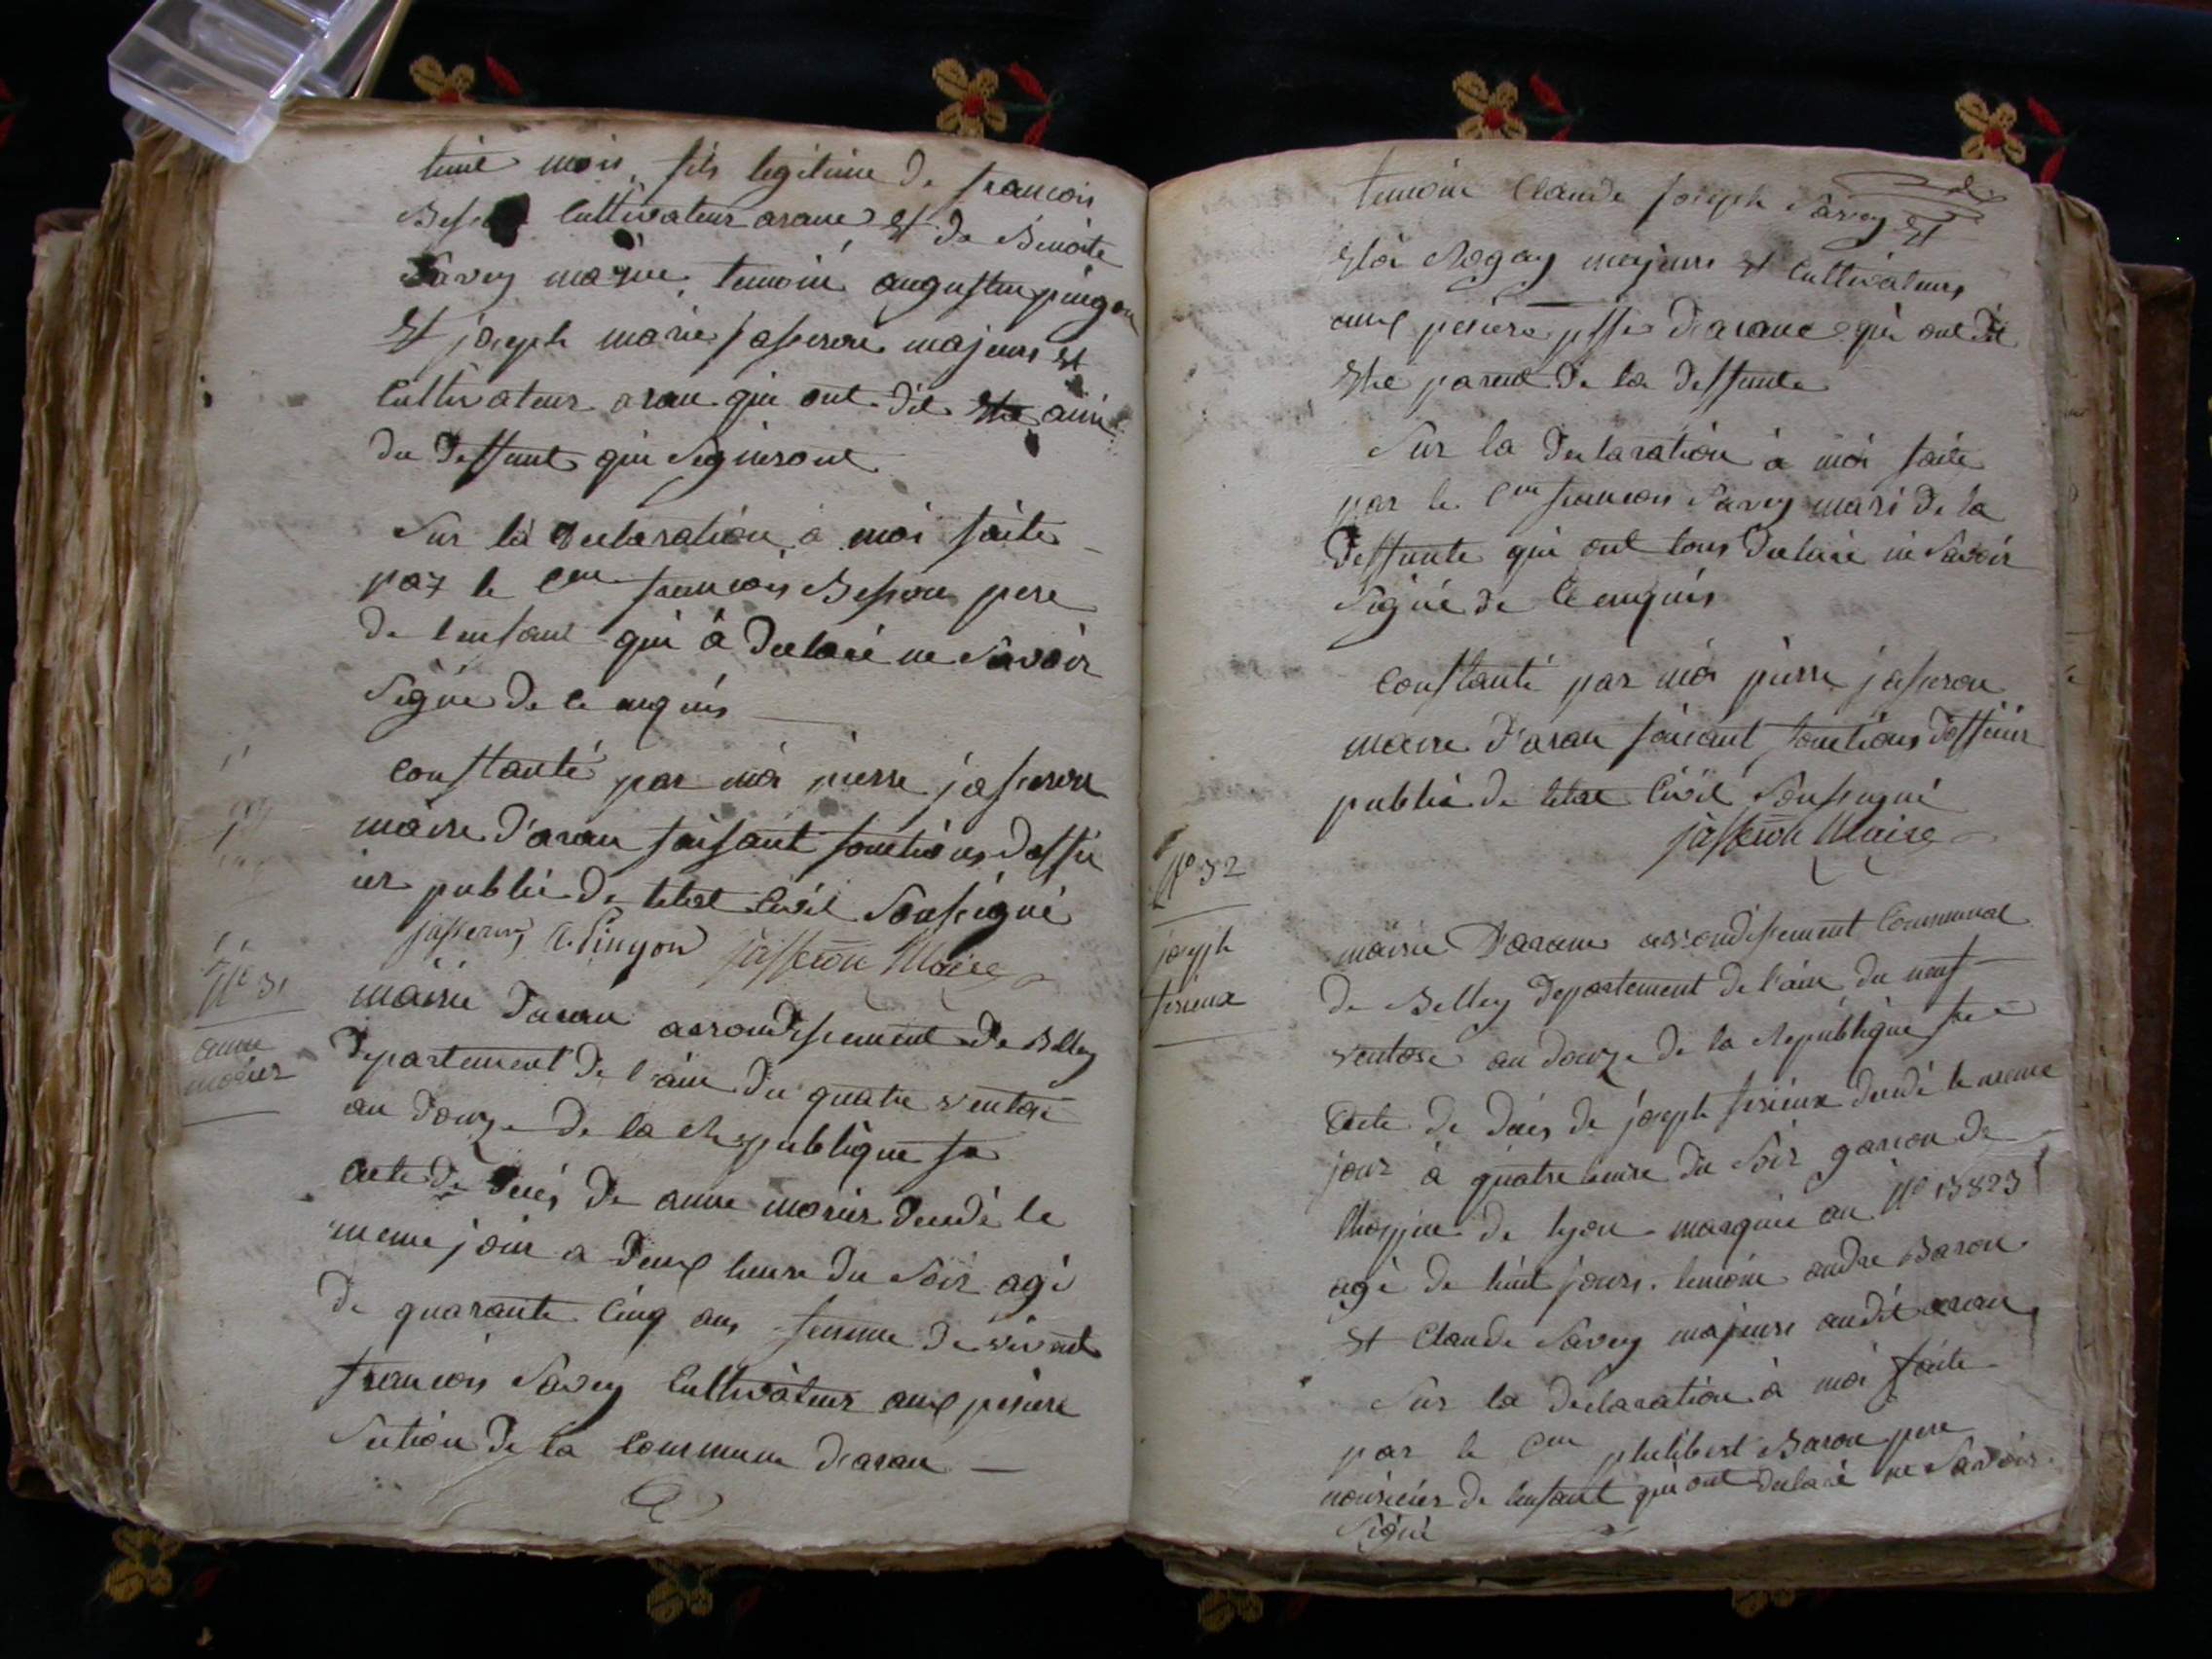 huit mois, fils legitime de francois
Besson Cultivateur arane et de Benoite
Savey mariee, temoins augustin pingon
Et joseph marie jasseron majeurs et
Cultivateur aran qui ont dit etre amis
du deffunt qui Signeront
Sur la declaration a moi faite
par le Cen francois Besson pere
de lenfant qui à declaré ne Savoir
Signé de ce enquis
constanté par moi pierre jasseron
maire d'aran faisant fonctions d'offic
ier public de letat Civil Soussigné
jasseron A. Pingon jasseron Maire
N° 31
anne
morier
mairie daran arrondissement de Belley
departement de l'ain du quatre ventose
an douze de la Republique fse
acte de deces de anne morier decedé le
meme jour a deux heure du Soir agé
de quarante Cinq ans femme de vivant
francois Savey Cultivateur aux pesiere
Section de la Commune daran
temoin Claude joseph Savey Et
Rogay majeurs et Cultivateurs
aux pesiere d'arane qui ont dit
Etre parent de la deffunte
Sur la declaration à moi faite
par le Cen francois Savey mari de la
deffunte qui ont tous declaré ne Savoir
Signé de Ce enquis
constanté par moi pierre jasseron
maire d'aran faisant fonctions d'officier
public de letat Civil Soussigné
jasseron Maire
N° 32
joseph
serieux
mairie D'arane arrondissement Communal
de Belley departement de l'ain du neuf
ventose an douze de la Republique fse
acte de deces de joseph serieux decedé le meme
jour à quatre heure du Soir garcon de
lhospice de lyon marquée au N° 15823
agé de huit jours. temoin andre Baron
et Claude Savey majeurs audit aran
Sur la declaration à moi faite
par le Cen philibert Baron pere
nouricier de lenfant qui ont declaré ne Savoir
Signé